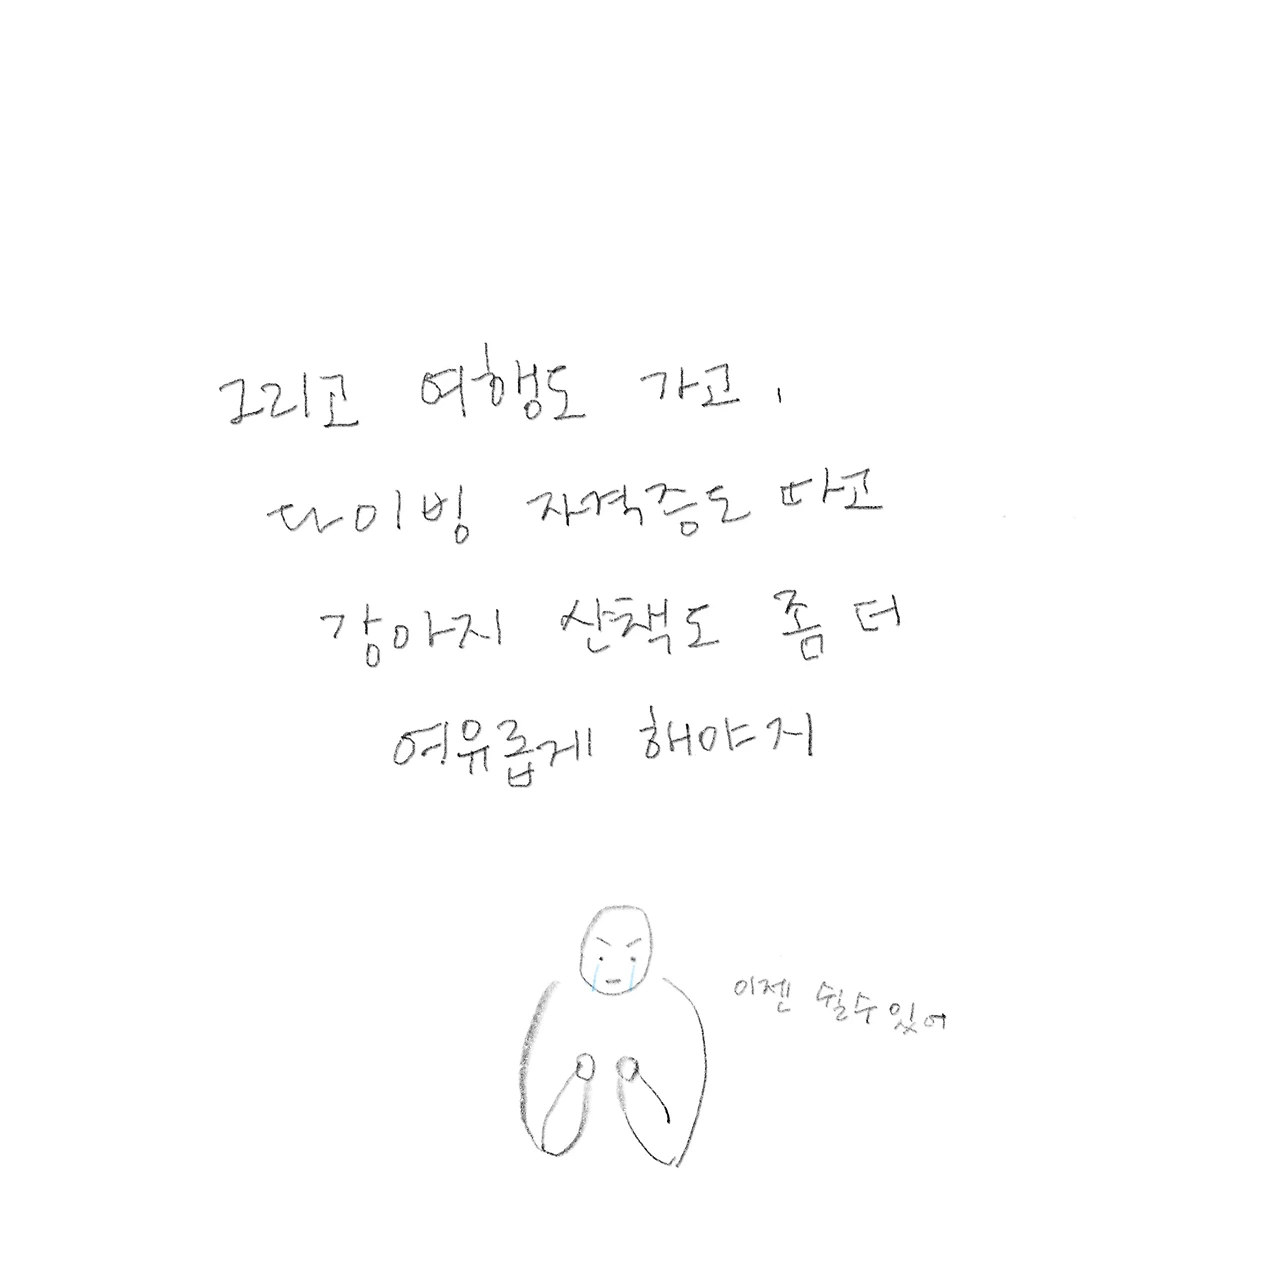 그리고 여행도 가고,
다이빙 자격증도 따고
강아지 산책도 좀 더
여유롭게 해야지
이젠 쉴수있어